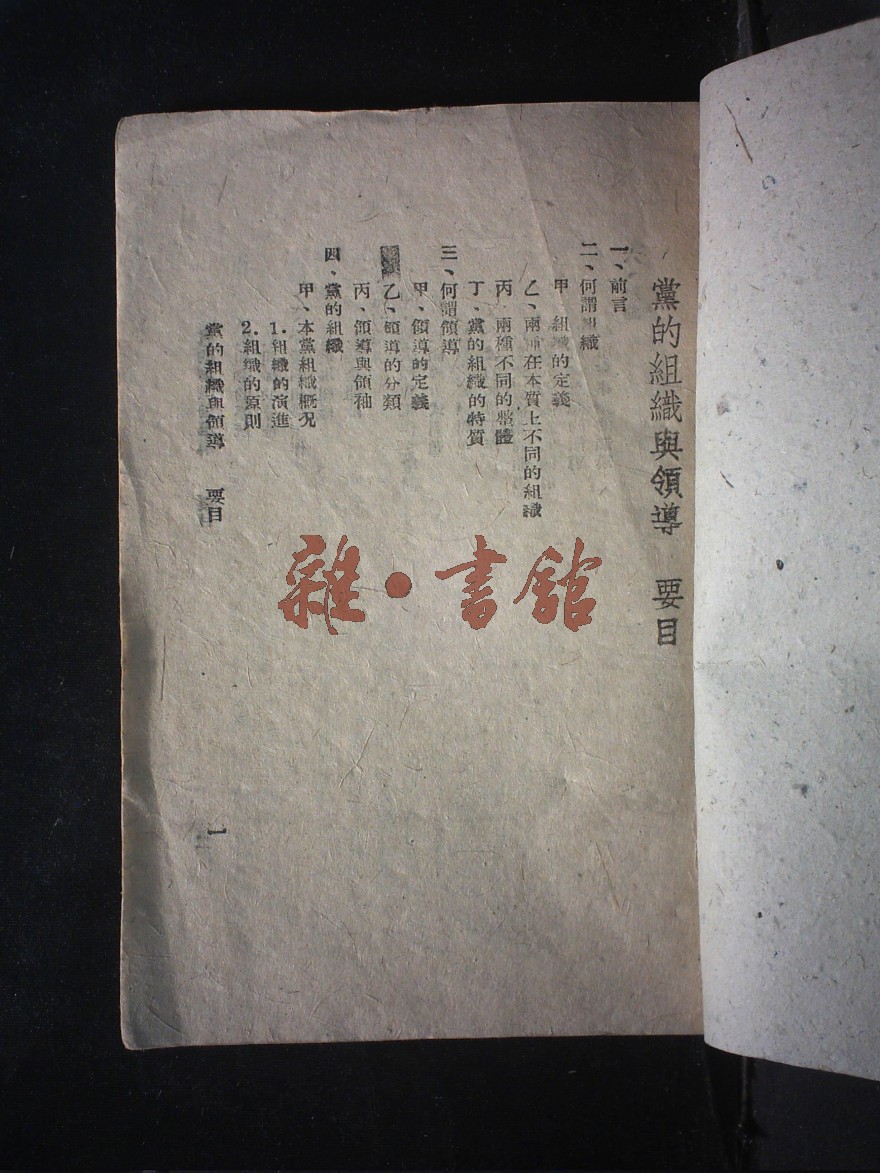 黨的組織與領導 要目
一、前言
二、何謂組織
甲、組織的定義
乙、兩種在本質上不同的組織
丙、兩種不同的整體
丁、黨的組織的特質
三、何謂領導
甲、領導的定義
乙、領導的分類
丙、領導與領袖
四、黨的組織
甲、本黨組織概況
1.組織的演進
2.組織的原則
黨的組織與領導 要目
1
雜·書館